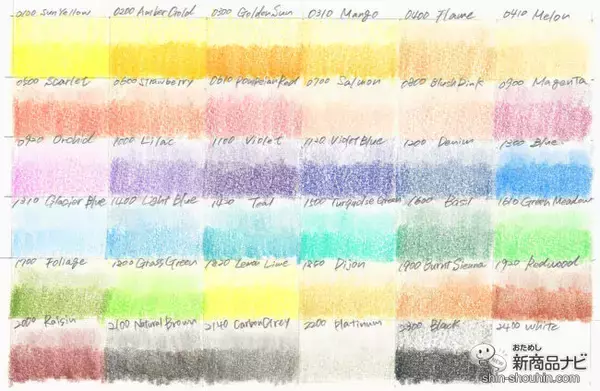 0100 SunYellow 0200 AmberGold 0300 GoldenSun 0310 Mango 0400 Flame 0410 Melon
0500 Scarlet 0600 Strawberry 0610 Pompeian Red 0700 Salmon 0800 Blush Pink 0900 Magenta
0920 Orchid 1000 Lilac 1100 Violet 1120 Violet Blue 1200 Denim 1300 Blue
1310 Glacier Blue 1400 Light Blue 1420 Teal 1500 Turquoise Green 1600 Basil 1610 Green Meadow
1700 Foliage 1800 Grass Green 1820 Lemon Lime 1850 Dijon 1900 Burnt Sienna 1920 Redwood
2000 Raisin 2100 Natural Brown 2140 Carbon Grey 2200 Platinum 2300 Black 2400 White
おためし
新商品ナビ
shin-shouhin.com